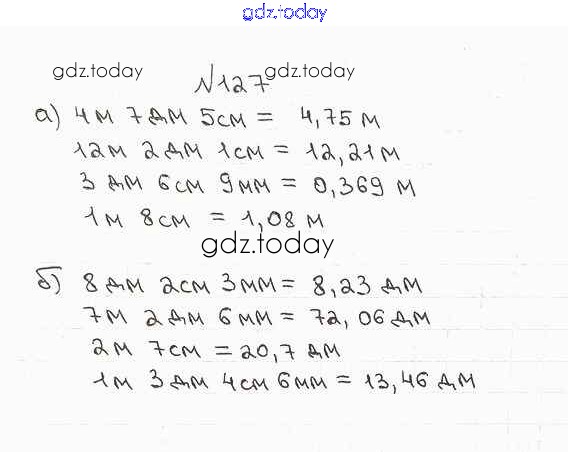 gdz.today
gdz.today
№127
gdz.today
а) 4м 7дм 5см = 4,75 м
12м 2 дм 1см = 12,21м
3 дм 6см 9мм = 0,369 м
1м 8см = 1,08 м
gdz.today
б) 8 дм 2см 3мм = 8,23 дм
7м 2 дм 6мм = 72,06 дм
2м 7см = 20,7 дм
1м 3 дм 4см 6мм = 13,46 дм